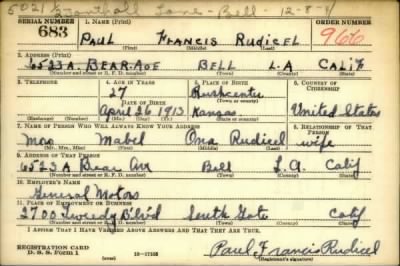 5021 Lane - Bell - 12-8-41
SERIAL NUMBER 1. NAME (Print) ORDER NUMBER
683 PAUL FRANCIS RUDICEL 966
(First) (Middle) (Last)
2. ADDRESS (Print)
6523 A. BEAR-AVE BELL L.A CALIF
(Number and street or R. F. D. number) (Town) (County) (State)
3. TELEPHONE 4. AGE IN YEARS 5. PLACE OF BIRTH 6. COUNTRY OF CITIZENSHIP
27 Rushcenter
DATE OF BIRTH (Town or county)
April 26 1913 Kansas United States
(Mo.) (Day) (Yr.) (State or country)
7. NAME OF PERSON WHO WILL ALWAYS KNOW YOUR ADDRESS 8. RELATIONSHIP OF THAT PERSON
Mrs Mabel Ona Rudicel wife
(Mr., Mrs., Miss) (First) (Middle) (Last)
9. ADDRESS OF THAT PERSON
6523 A Bear Ave Bell L.A. Calif
(Number and street or R. F. D. number) (Town) (County) (State)
10. EMPLOYER'S NAME
General Motors
11. PLACE OF EMPLOYMENT OR BUSINESS
2700 Tweedy Blvd South Gate Calif
(Number and street or R. F. D. number) (Town) (County) (State)
I AFFIRM THAT I HAVE VERIFIED ABOVE ANSWERS AND THAT THEY ARE TRUE.
REGISTRATION CARD
D. S. S. Form 1 Paul Francis Rudicel
(Registrant's signature)